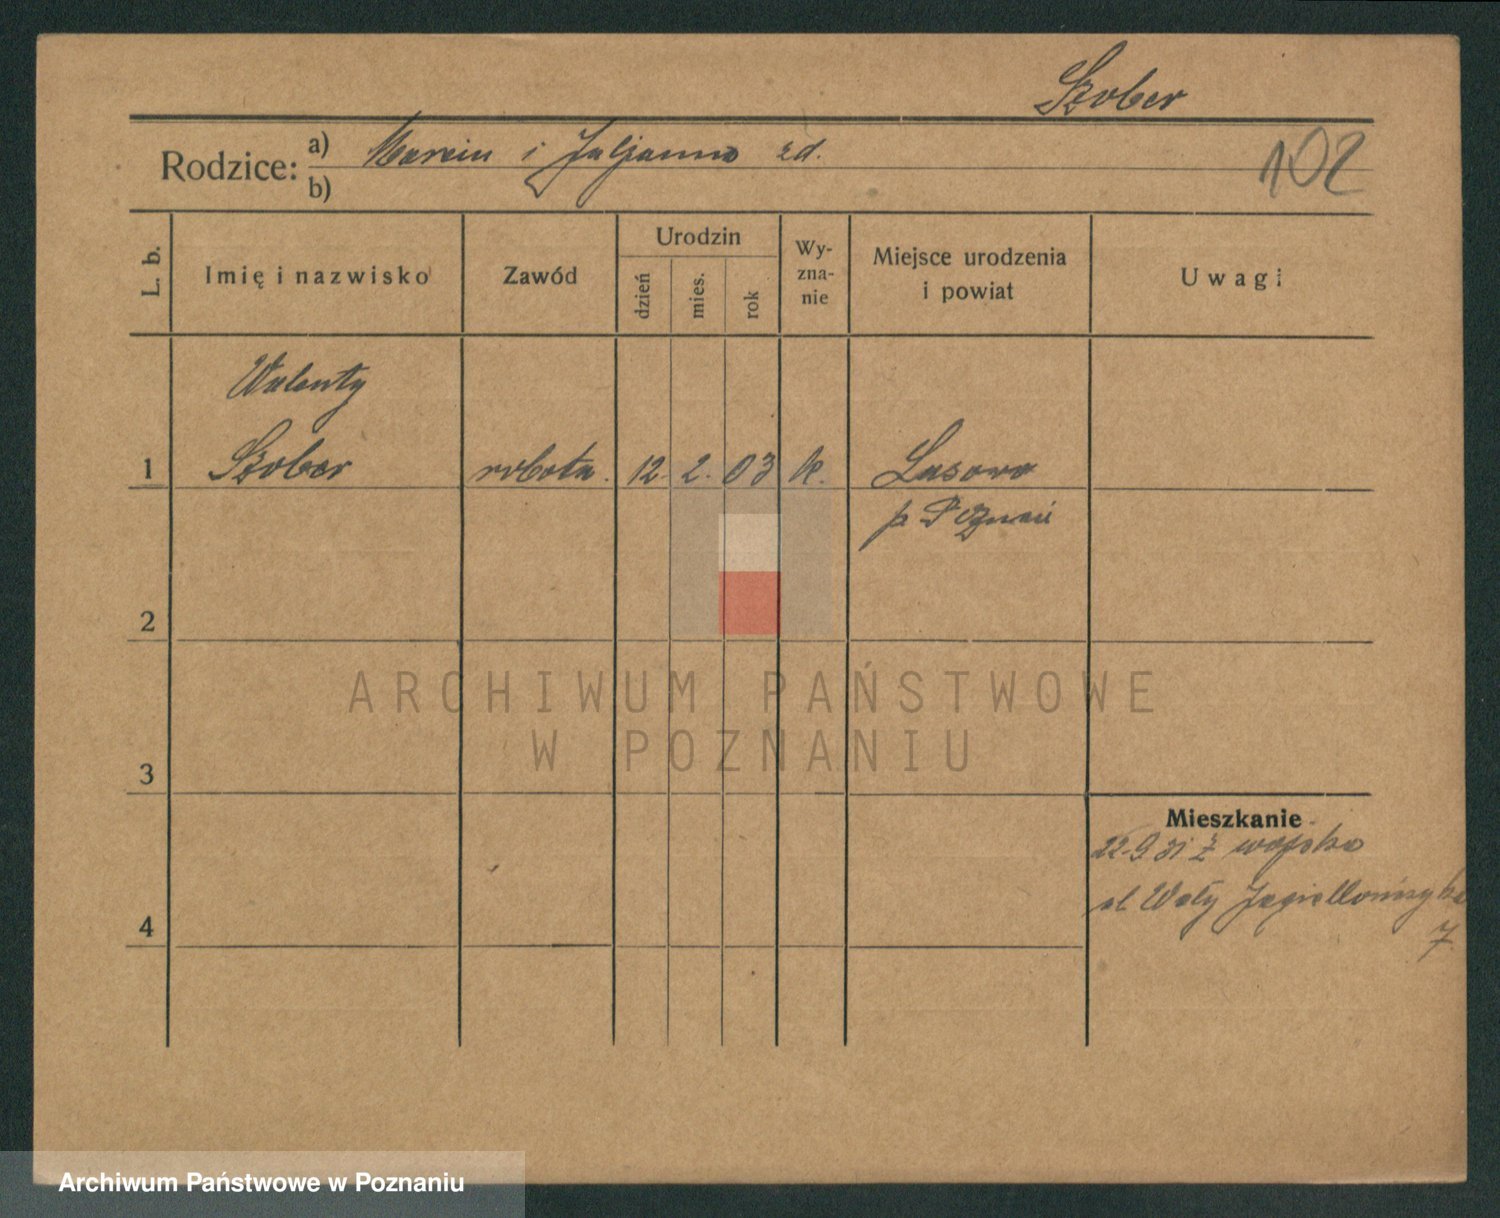 Szober
Rodzice: a) Marcin i Juljanna zd.
b)
102
L. b.
Imię i nazwisko
Zawód
Urodzin
dzień
mies.
rok
Wy-
zna-
nie
Miejsce urodzenia
i powiat
Uwagi
Walenty
1 Szober robotn. 12. 2. 03 k.
p. Poznań
2
3
4
Mieszkanie
22.9 31 z wojska
ul Wały Jagiellońsky
7
ARCHIWUM PAŃSTWOWE
W POZNANIU
Archiwum Państwowe w Poznaniu